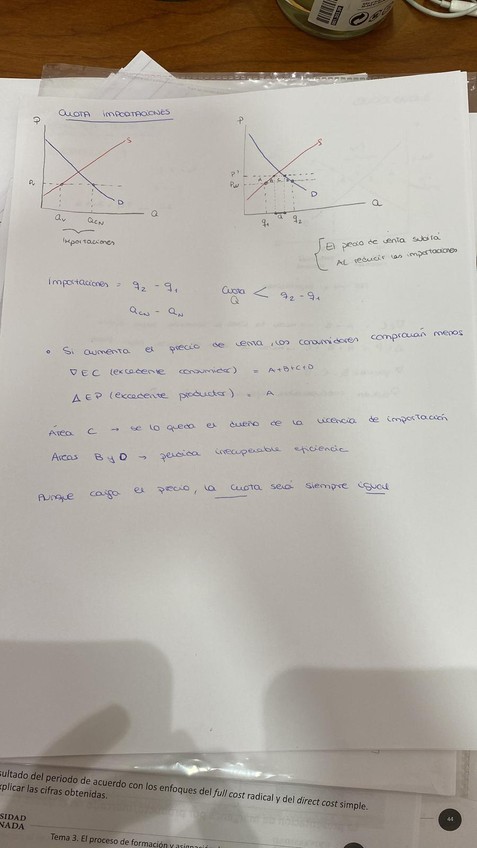 CUOTA IMPORTACIONES
P
S
Pw
D
Q
QN
QCN
Importaciones
P
S
P'
Pw
A B C D
D
Q
q1
Q
q2
El precio de venta subirá
AL reducir las importaciones
Importaciones = q2 - q1
Cuota < q2 - q1
Q
QCN - QN
• Si aumenta el precio de venta, los consumidores comprarán menos
∇ EC (excedente consumidor) = A+B+C+D
Δ EP (excedente productor) = A
Área C → se lo queda el dueño de la licencia de importación
Areas B y D → pérdida irrecuperable eficiencia
Aunque caiga el precio, la cuota será siempre igual
sultado del periodo de acuerdo con los enfoques del full cost radical y del direct cost simple.
xplicar las cifras obtenidas.
44
SIDAD
NADA
Tema 3. El proceso de formación y